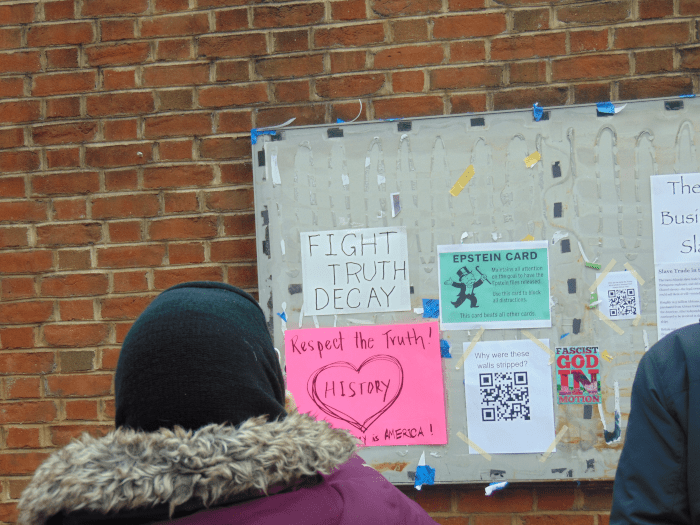 FIGHT
TRUTH
DECAY
EPSTEIN CARD
Maintains all attention
on the goal to have the
Epstein files released.
Use this card to block
all distractions.
This card beats all other cards.
The
Busi
Sla
Slave Trade in
Respect the Truth!
HISTORY
IS AMERICA!
Why were these
walls stripped?
FASCIST
GOD
IN
MOTION